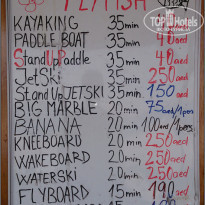 FLYFISH
TOP Hotels
KAYAKING 35min 40aed
PADDLE BOAT 35min 40aed
StandUPaddle 35min 50aed
JetSKi 35min 250aed
StandUPJETSKI 35min 150aed
BIG MARBLE 20min 75aed/1pers
BANANA 20min 100aed/1pers
KNEEBOARD 20min 250aed
WAKEBOARD 20min 250aed
WATERSKI 20min 250aed
FLYBOARD 15min 190aed